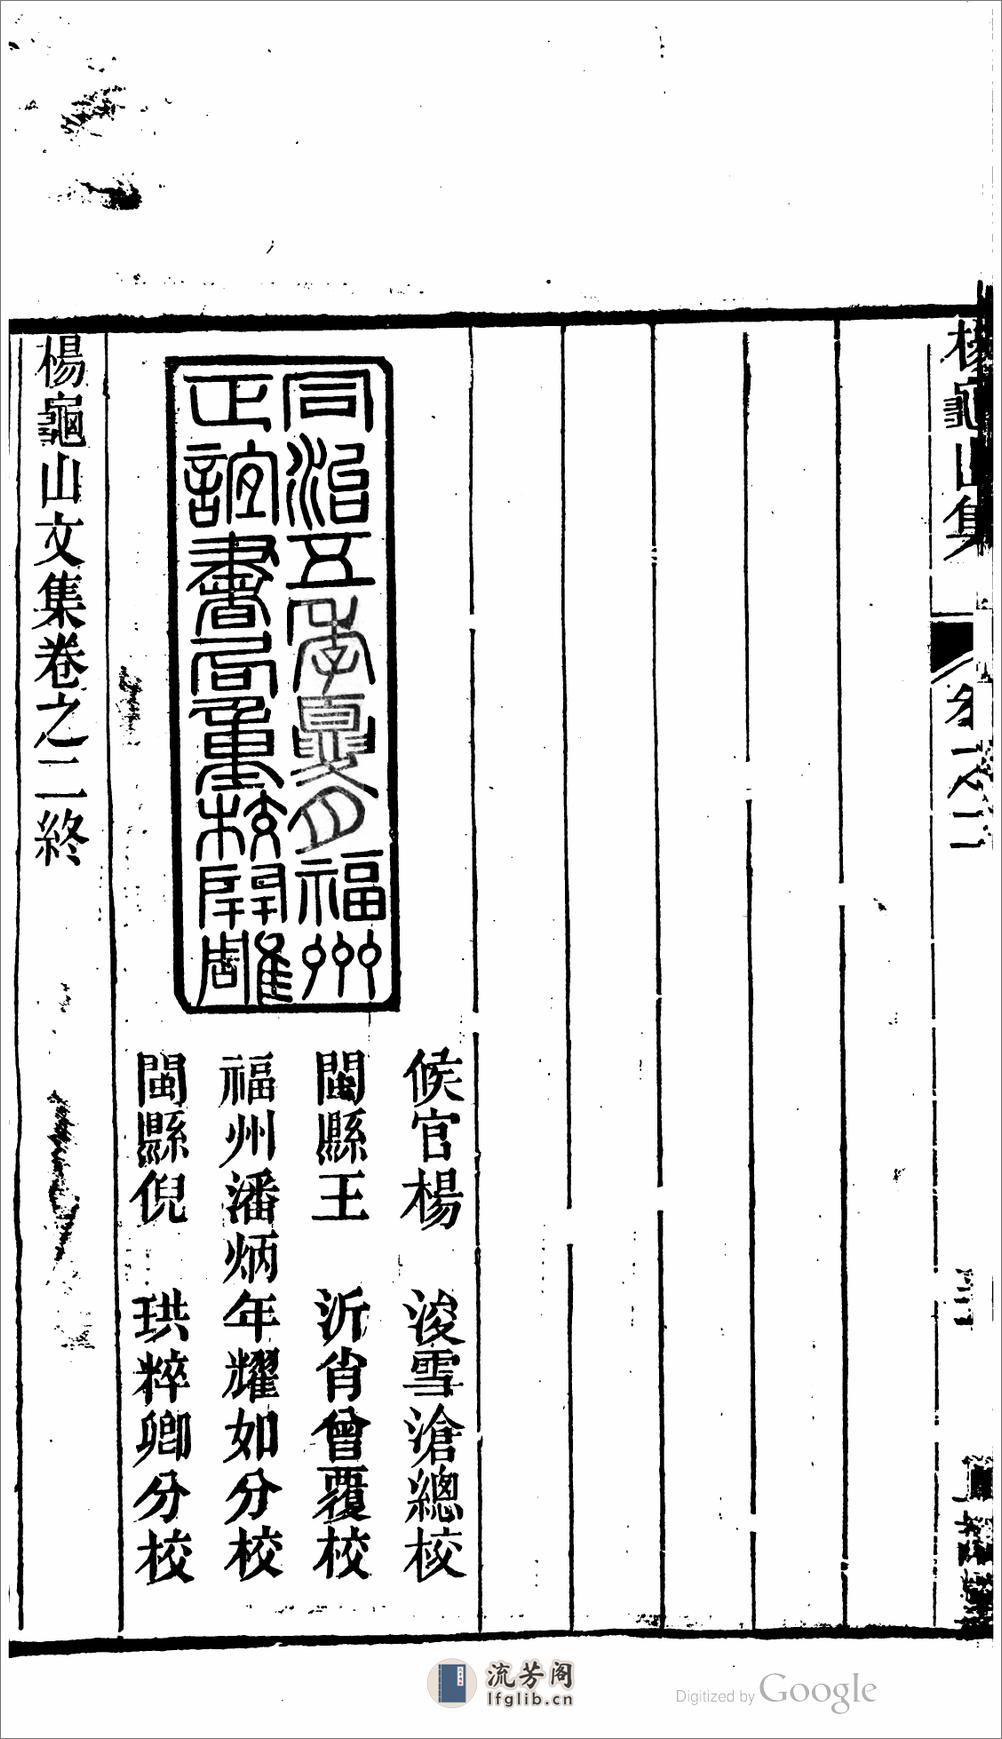 楊龜山集
卷之二
同治五年夏月福州
正誼書局重校開雕
候官楊 浚雪滄總校
閩縣王 沂肖曾覆校
福州潘炳年耀如分校
閩縣倪 珙粹卿分校
楊龜山文集卷之二終
流芳阁
lfglib.cn
Digitized by Google